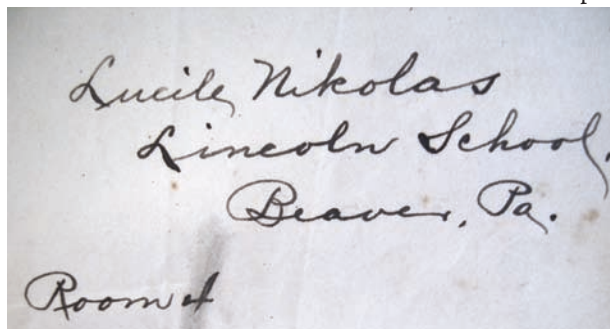 Lucile Nikolas
Lincoln School,
Beaver, Pa.
Room 4